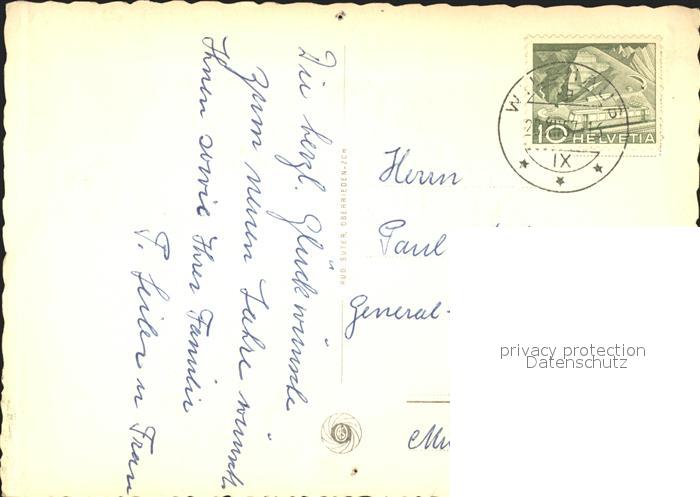 Die herzl. Glückwünsche
zum neuen Jahre wünscht
Ihnen sowie Ihrer Familie
P. Seiler u Frau
RUD. SUTER, OBERRIEDEN-ZCH
10 HELVETIA
IX
Herrn
Paul
General-
privacy protection
Datenschutz